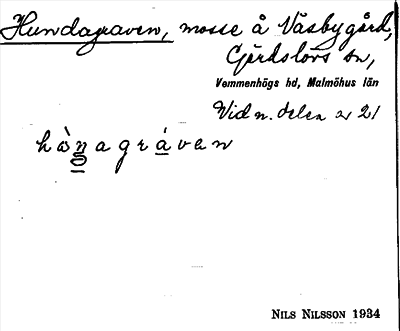 Hundagraven, mosse å Näsbygård,
Gärdslövs sn,
Vemmenhögs hd, Malmöhus län
Vid n. delen av 21
hànagráven
NILS NILSSON 1934